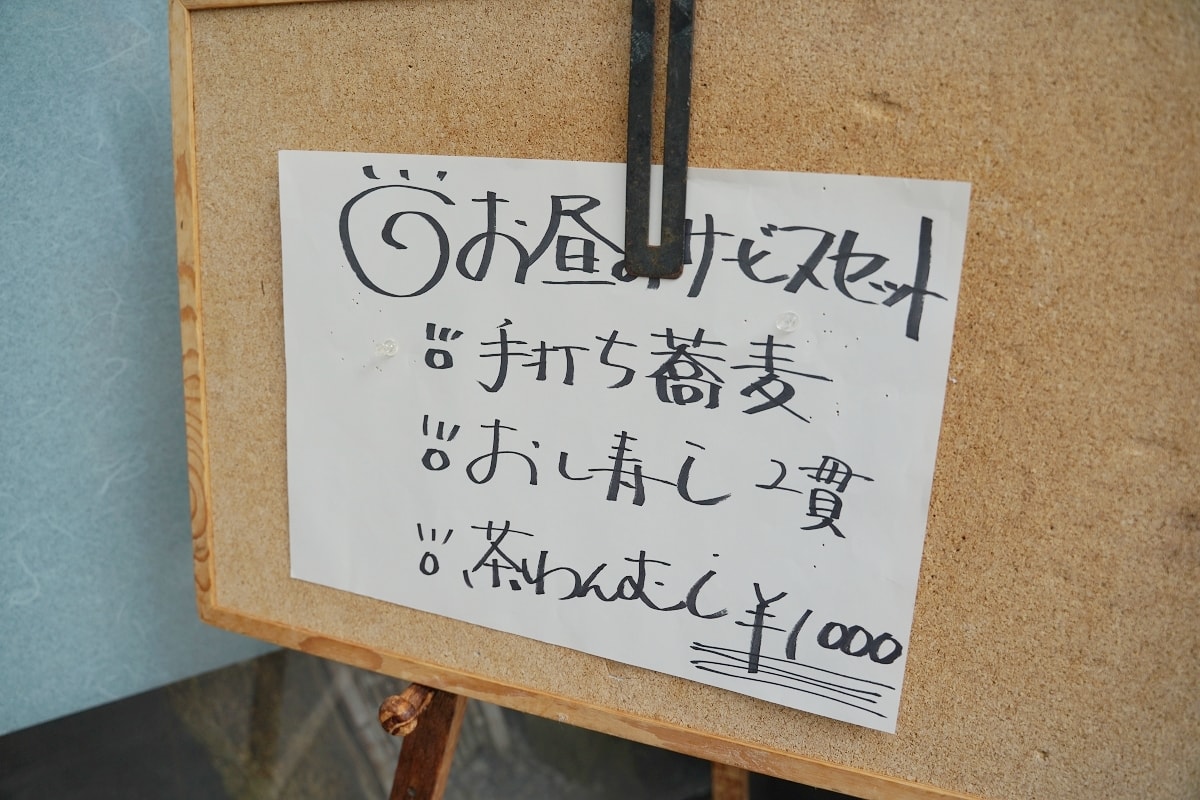 お昼のサービスセット
手打ち蕎麦
おし寿し 2貫
茶わんむし ¥1000